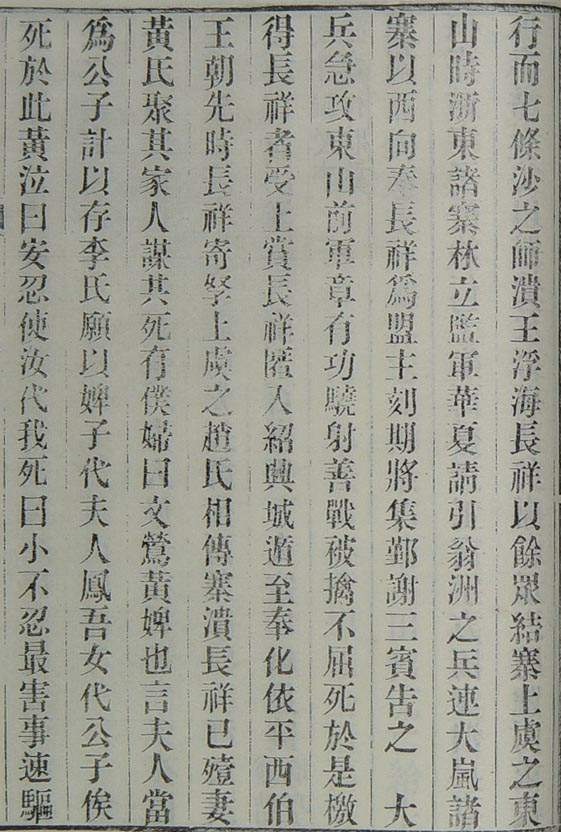 行而七條沙之師潰王浮海長祥以餘眾結寨上虞之東
山時浙東諸寨林立監軍華夏請引翁洲之兵連大嵐諸
寨以西向奉長祥爲盟主刻期將集鄞謝三賓告之　大
兵急攻東山前軍章有功驍射善戰被擒不屈死於是檄
得長祥者受上賞長祥匿入紹興城遁至奉化依平西伯
王朝先時長祥寄孥上虞之趙氏相傳寨潰長祥已殪妻
黃氏聚其家人謀其死有僕婦曰文鶯黃婢也言夫人當
爲公子計以存李氏願以婢子代夫人鳳吾女代公子俟
死於此黃泣曰安忍使汝代我死曰小不忍最害事速驅